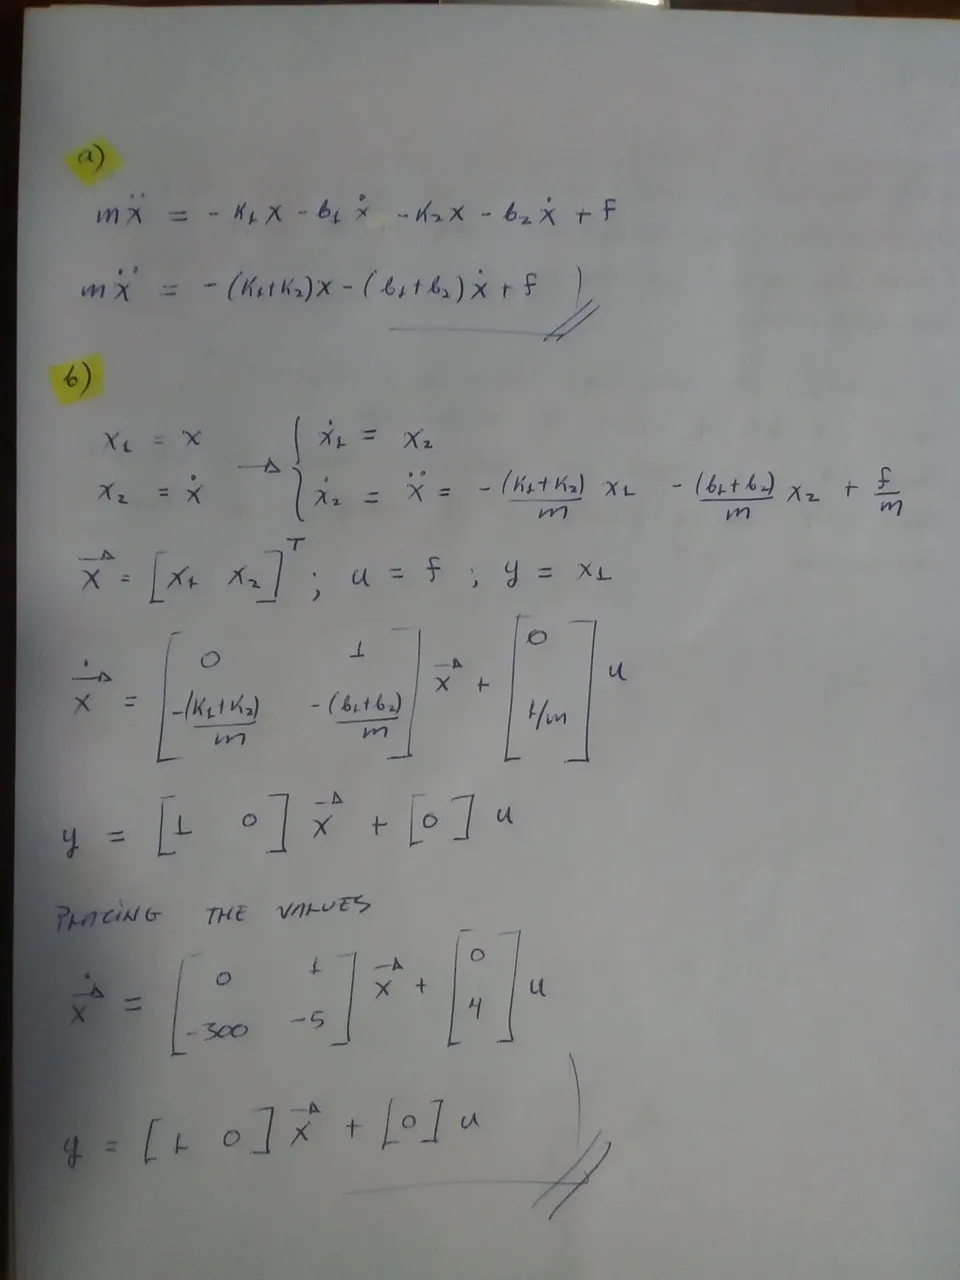 a)
mẍ = - K₁x - b₁ẋ - K₂x - b₂ẋ + f
mẍ = -(K₁+K₂)x - (b₁+b₂)ẋ + f
b)
x₁ = x → { ẋ₁ = x₂
x₂ = ẋ { ẋ₂ = ẍ = -(K₁+K₂)/m x₁ - (b₁+b₂)/m x₂ + f/m
x⃗ = [x₁ x₂]ᵀ ; u = f ; y = x₁
x⃗̇ = [0 1; -(K₁+K₂)/m -(b₁+b₂)/m] x⃗ + [0; 1/m] u
y = [1 0] x⃗ + [0] u
PLACING THE VALUES
x⃗̇ = [0 1; -300 -5] x⃗ + [0; 4] u
y = [1 0] x⃗ + [0] u